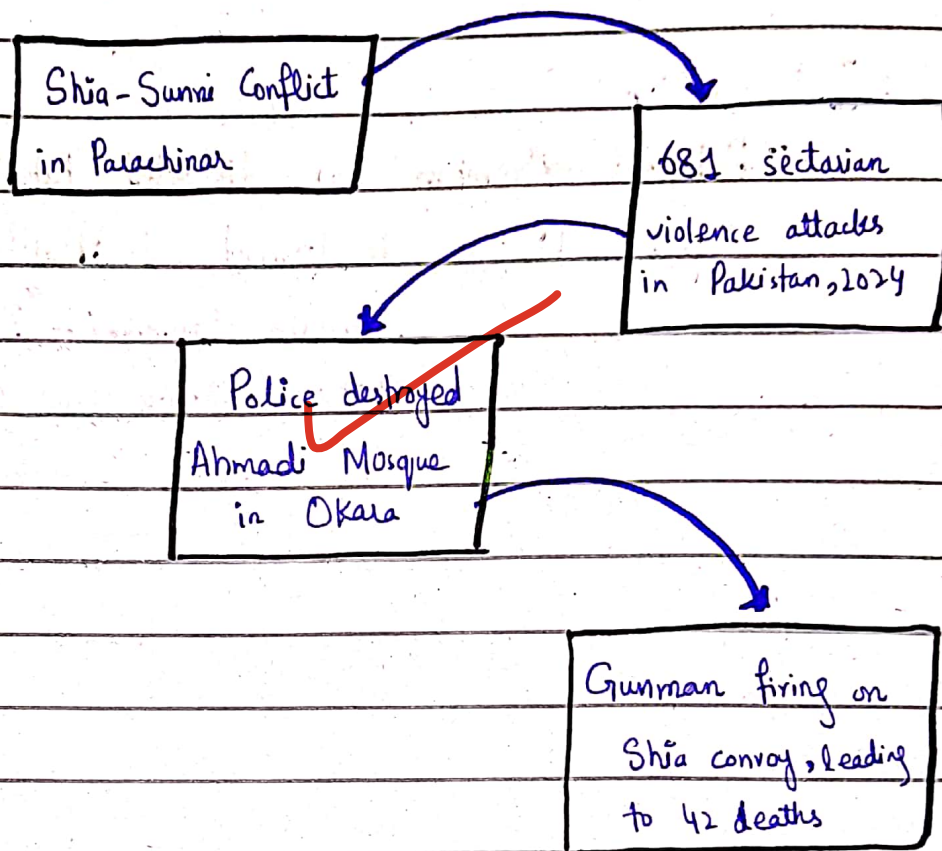 Shia-Sunni Conflict
in Parachinar
681 sectarian
violence attacks
in Pakistan, 2024
Police destroyed
Ahmadi Mosque
in Okara
Gunman firing on
Shia convoy, leading
to 42 deaths